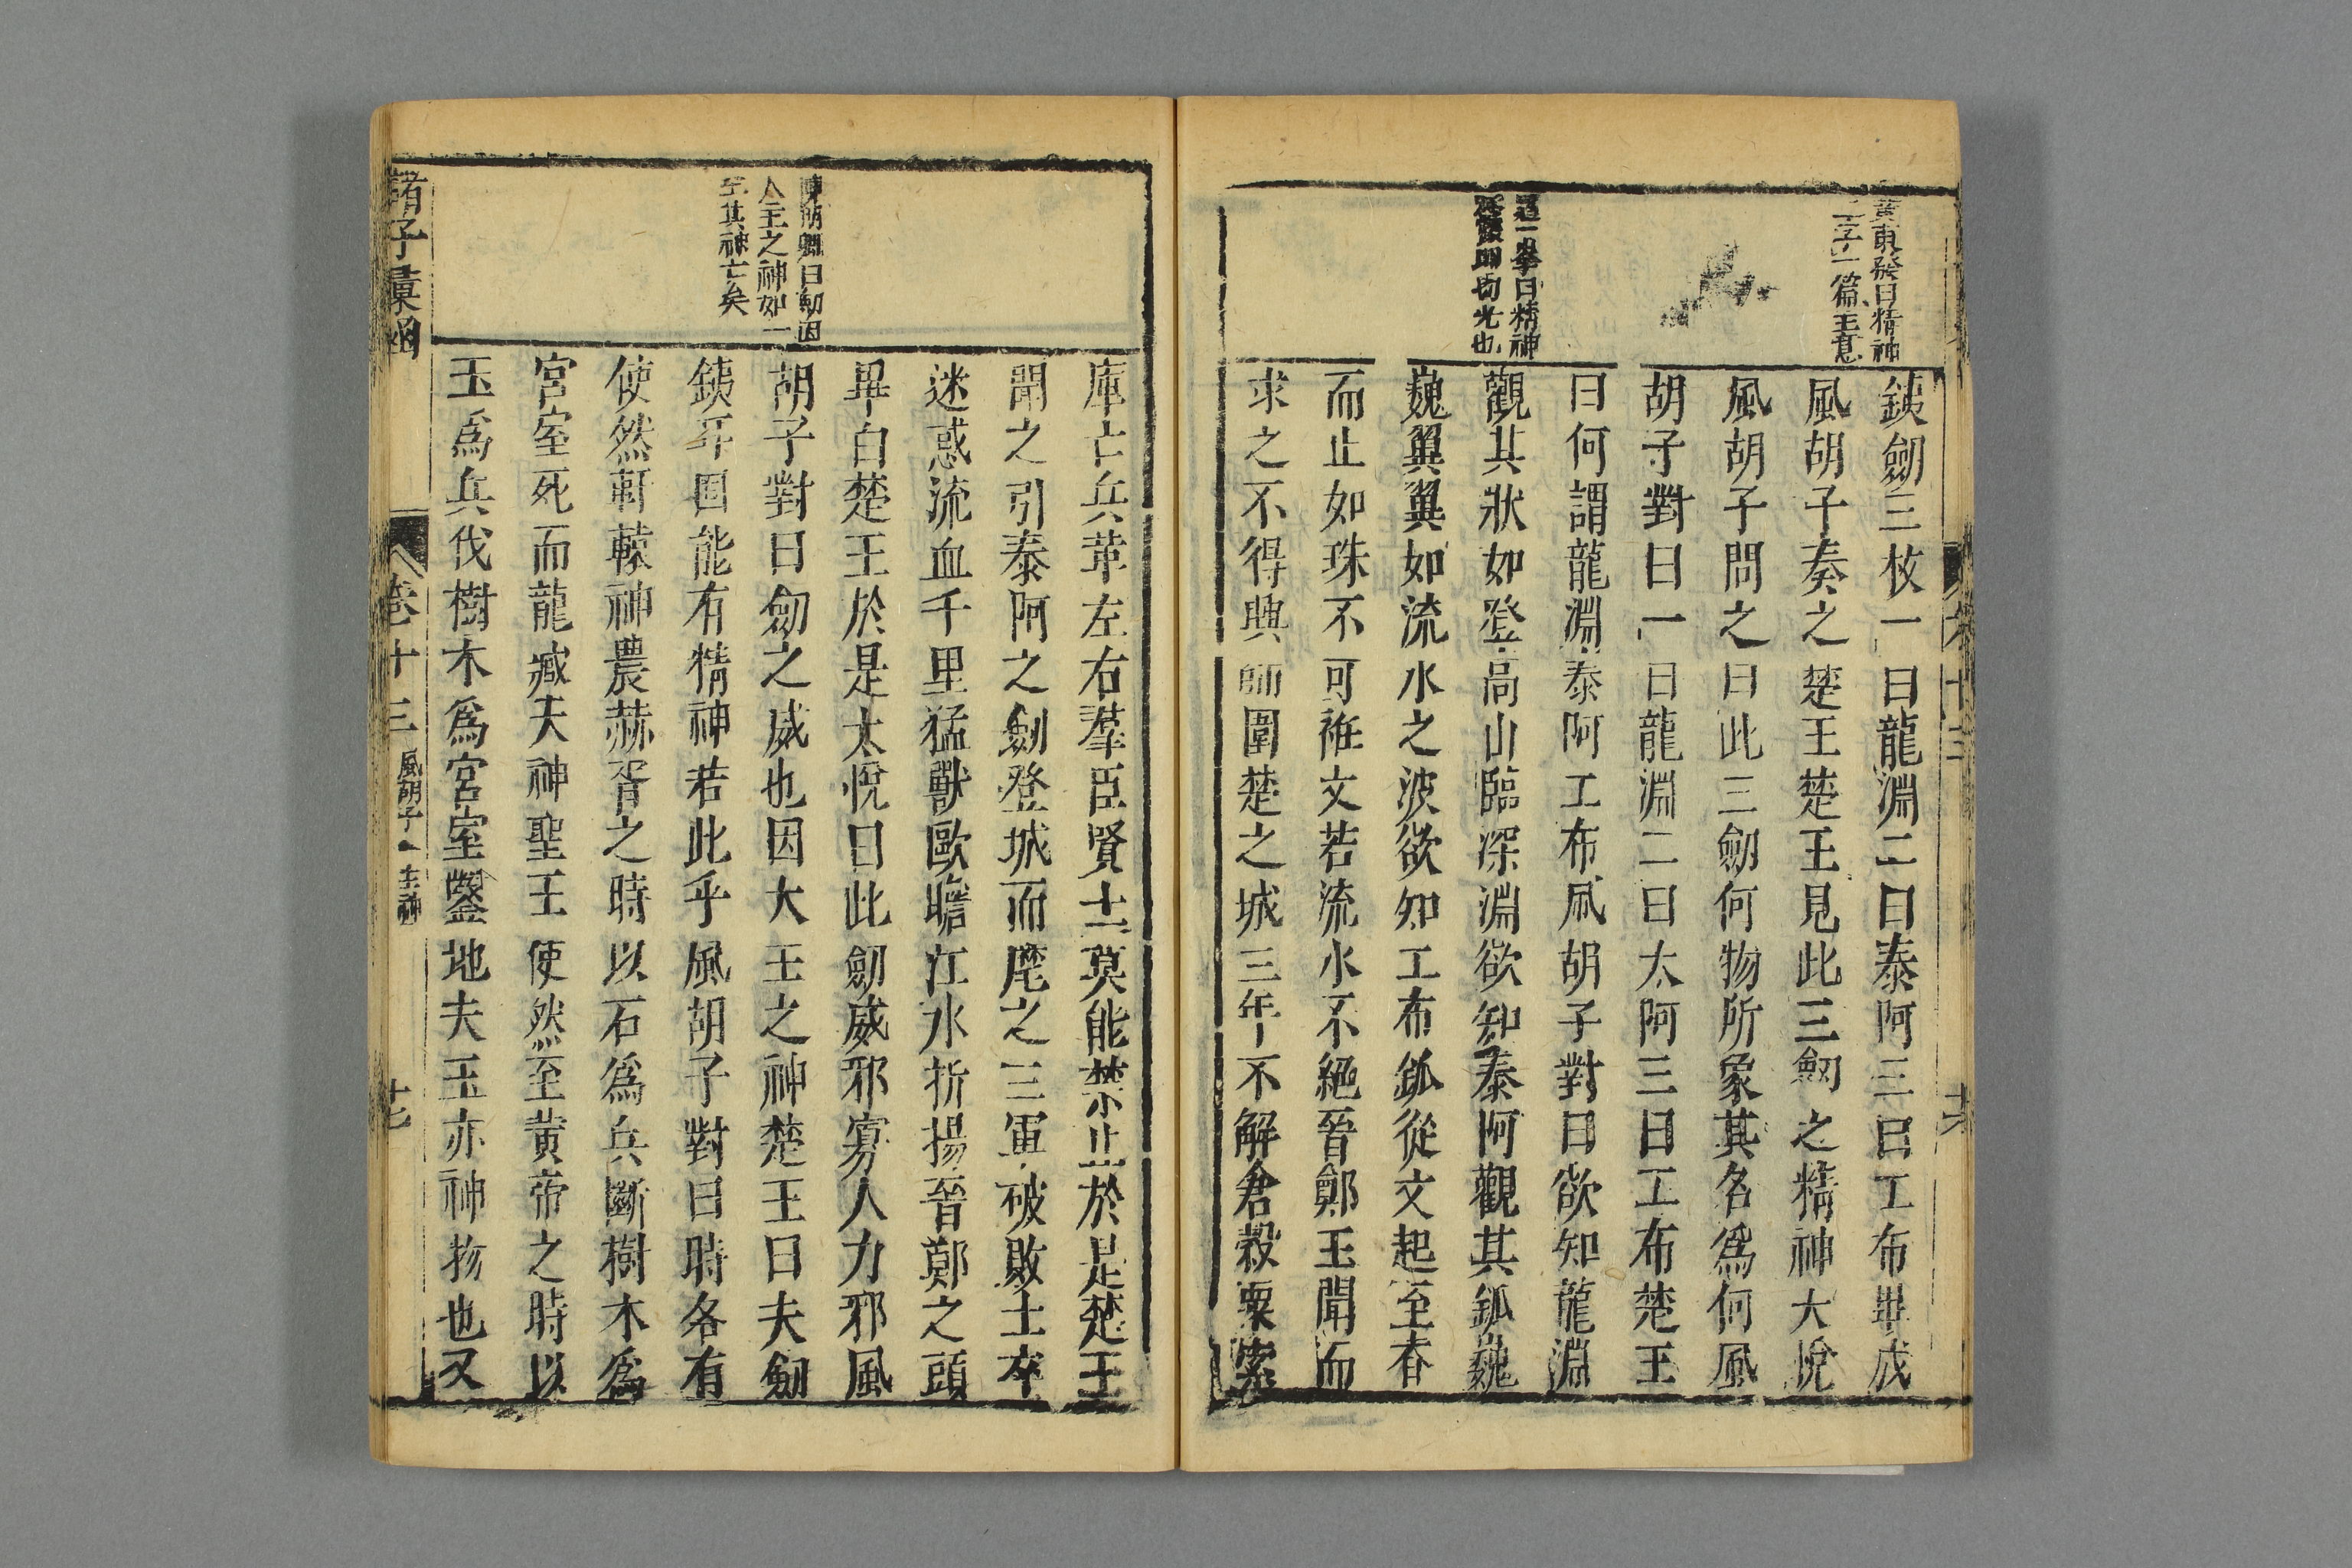 黃東發曰精神
二字一篇主意
鐵劒三枚一曰龍淵二曰泰阿三曰工布畢成
風胡子奏之楚王楚王見此三劒之精神大悅
風胡子問之曰此三劒何物所象其名爲何風
胡子對曰一曰龍淵二曰太阿三曰工布楚王
曰何謂龍淵泰阿工布風胡子對曰欲知龍淵
曰精神
光也
觀其狀如登高山臨深淵欲知泰阿觀其釽巍
巍翼翼如流水之波欲知工布釽從文起至脊
而止如珠不可袵文若流水不絕晉鄭王聞而
求之不得興師圍楚之城三年不解倉穀粟索
庫亡兵革左右羣臣賢士莫能禁止於是楚王
聞之引泰阿之劍登城而麾之三軍破敗士卒
迷惑流血千里猛獸歐瞻江水折揚晉鄭之頭
畢白楚王於是太悅曰此劒威邪寡人力邪風
陳明卿曰劒因
人主之神如一
至其神亡矣
胡子對曰劒之威也因大王之神楚王曰夫劒
鐵耳固能有精神若此乎風胡子對曰時各有
使然軒轅神農赫胥之時以石爲兵斷樹木爲
宮室死而龍臧夫神聖王使然至黃帝之時以
玉爲兵伐樹木爲宮室鑿地夫玉亦神物也又
諸子彙函
卷十三
風胡子
十七